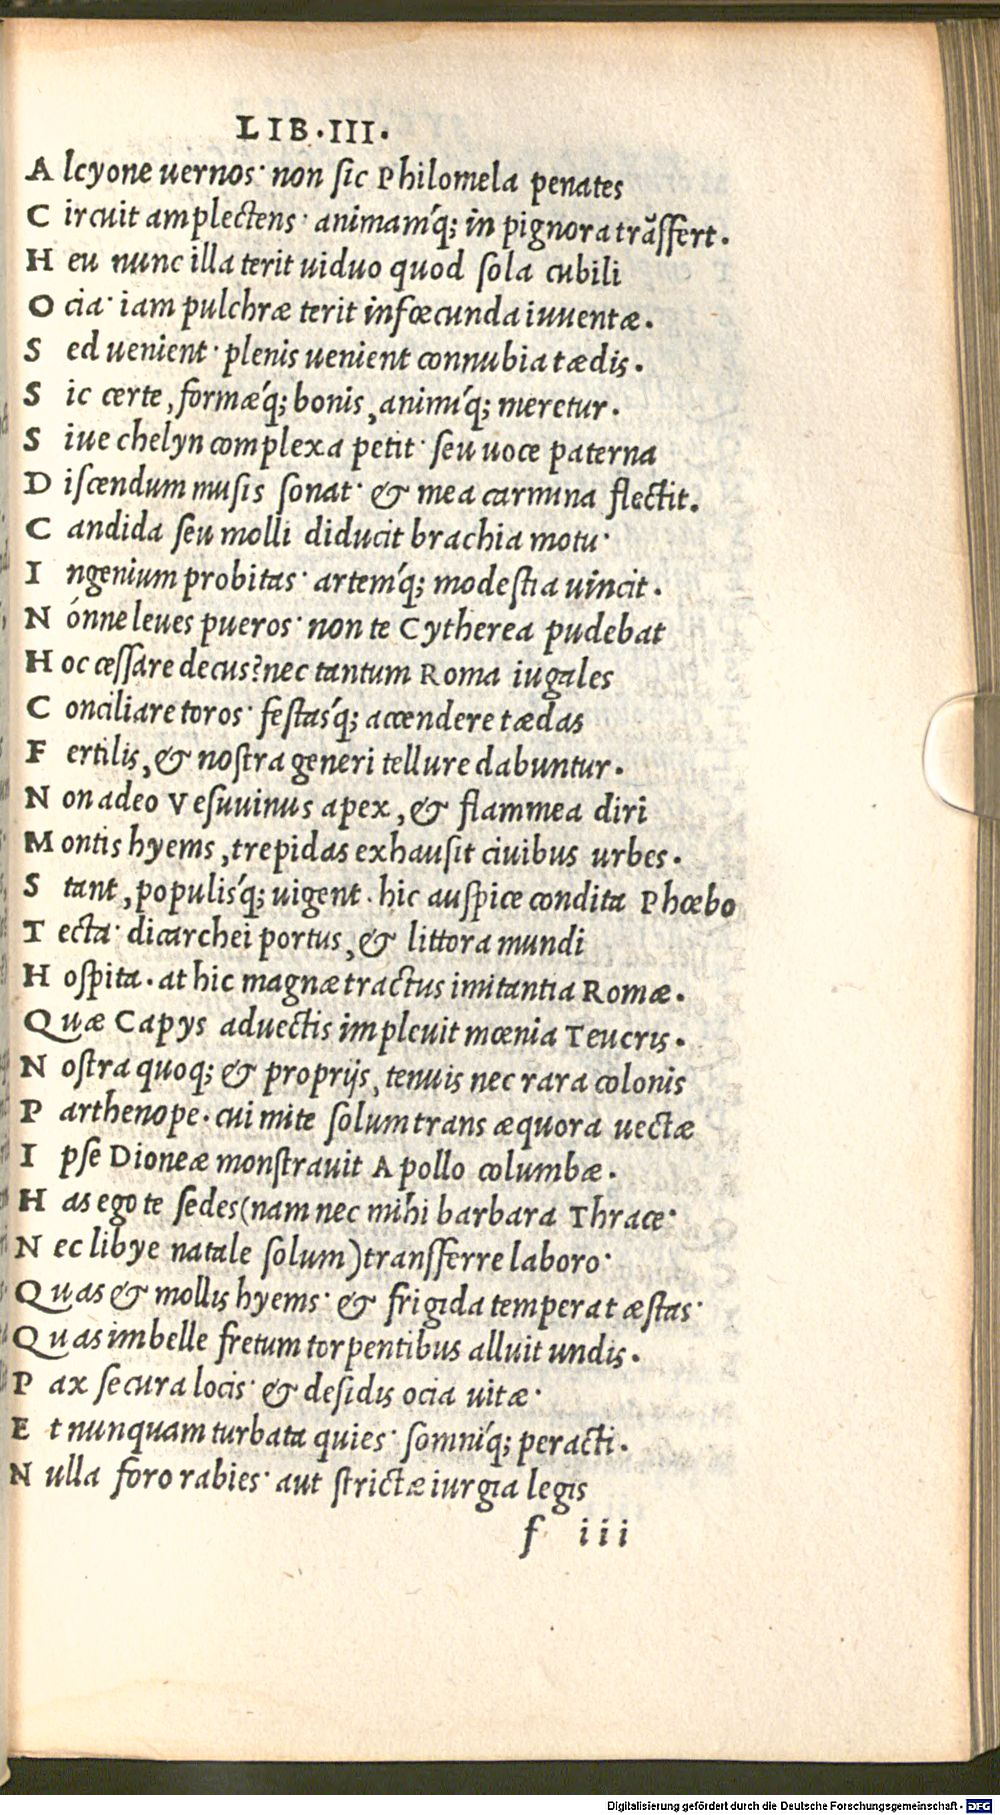 LIB.III.
A lcyone uernos· non sic Philomela penates
C ircuit amplectens· animamq́; in pignora trãſfert.
H eu nunc illa terit uiduo quod ſola cubili
O cia· iam pulchræ terit infœcunda iuuentæ.
S ed uenient· plenis uenient connubia tædis.
S ic certe, formæq́; bonis, animiq́; meretur.
S iue chelyn complexa petit· ſeu uoce paterna
D iſcendum muſis ſonat· & mea carmina flectit.
C andida ſeu molli diducit brachia motu·
I ngenium probitas· artemq́; modeſtia uincit.
N ónne leues pueros· non te Cytherea pudebat
H oc ceſſare decus? nec tantum Roma iugales
C onciliare toros· feſtasq́; accendere tædas
F ertilis, & noſtra generi tellure dabuntur.
N on adeo Veſuuinus apex, & flammea diri
M ontis hyems, trepidas exhauſit ciuibus urbes.
S tant, populisq́; uigent. hic auſpice condita Phœbo
T ecta· dicarchei portus, & littora mundi
H oſpita. at hic magnæ tractus imitantia Romæ.
Quæ Capys aduectis impleuit mœnia Teucris.
N oſtra quoq; & proprijs, tenuis nec rara colonis
P arthenope. cui mite ſolum trans æquora uectæ
I pſe Dioneæ monſtrauit Apollo columbæ.
H as ego te ſedes (nam nec mihi barbara Thrace·
N ec libye natale ſolum) tranſferre laboro·
Quas & mollis hyems· & frigida temperat æſtas·
Quas imbelle fretum torpentibus alluit undis.
P ax ſecura locis· & deſidis ocia uitæ·
E t nunquam turbata quies· ſomniq́; peracti.
N ulla foro rabies· aut ſtrictæ iurgia legis
f iii
Digitalisierung gefördert durch die Deutsche Forschungsgemeinschaft - DFG